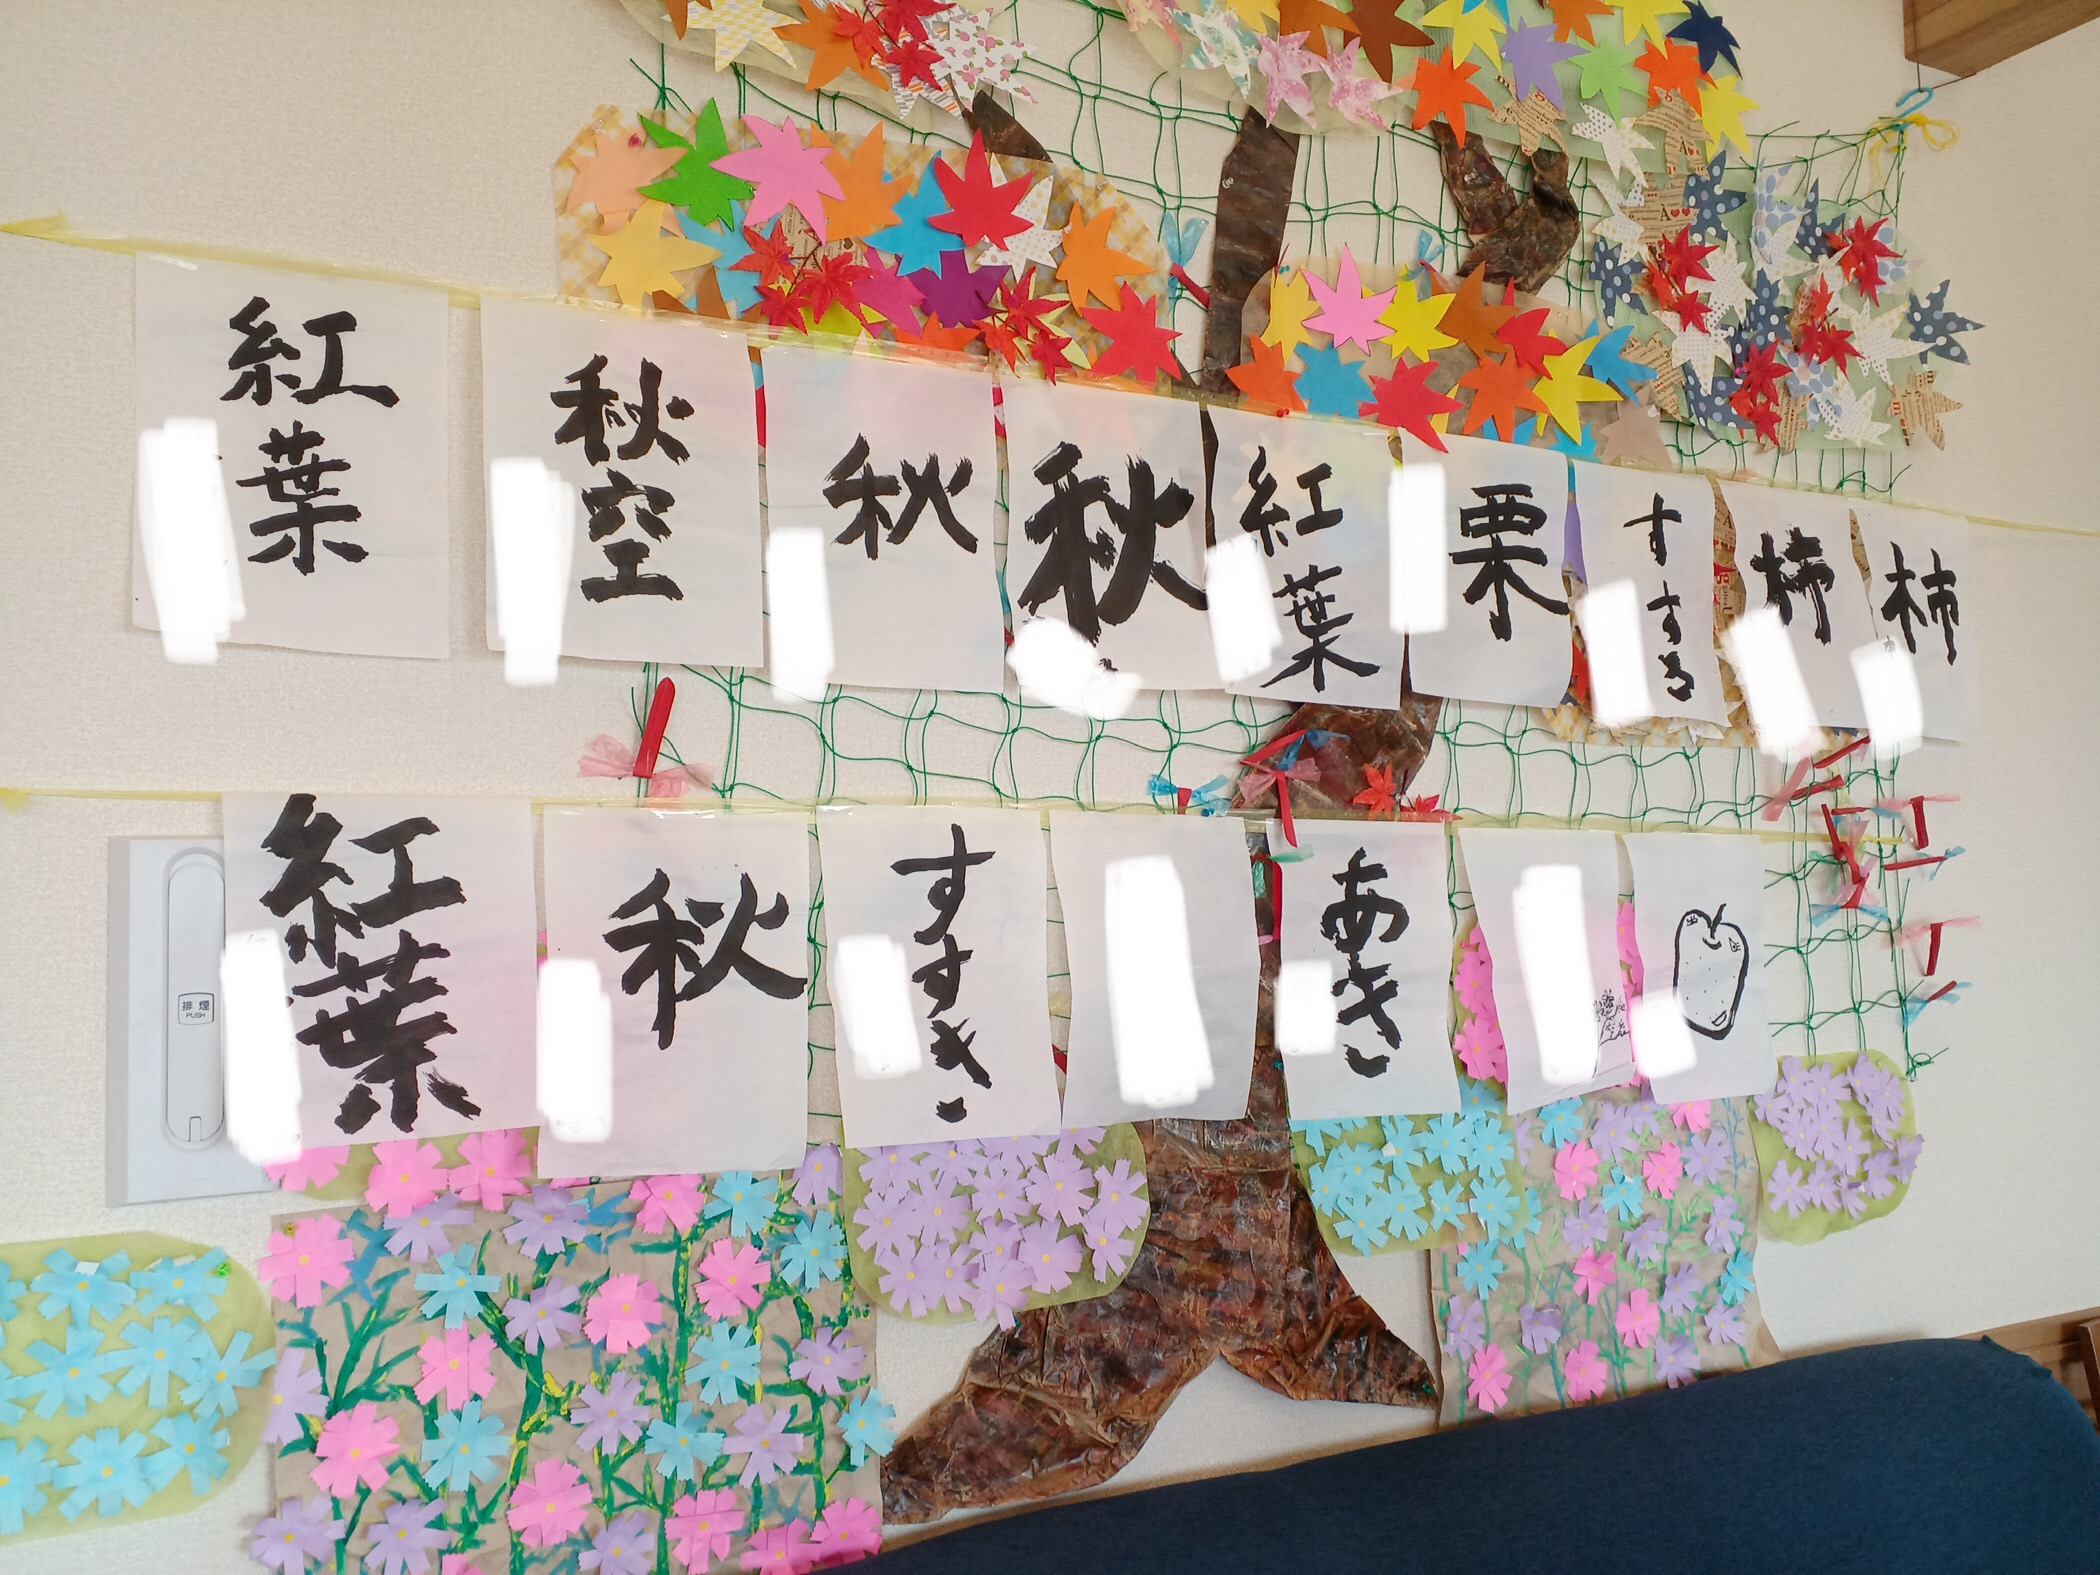 紅葉
秋空
秋
秋
紅葉
栗
すすき
柿
柿
紅葉
秋
すすき
あき
排煙
PUSH